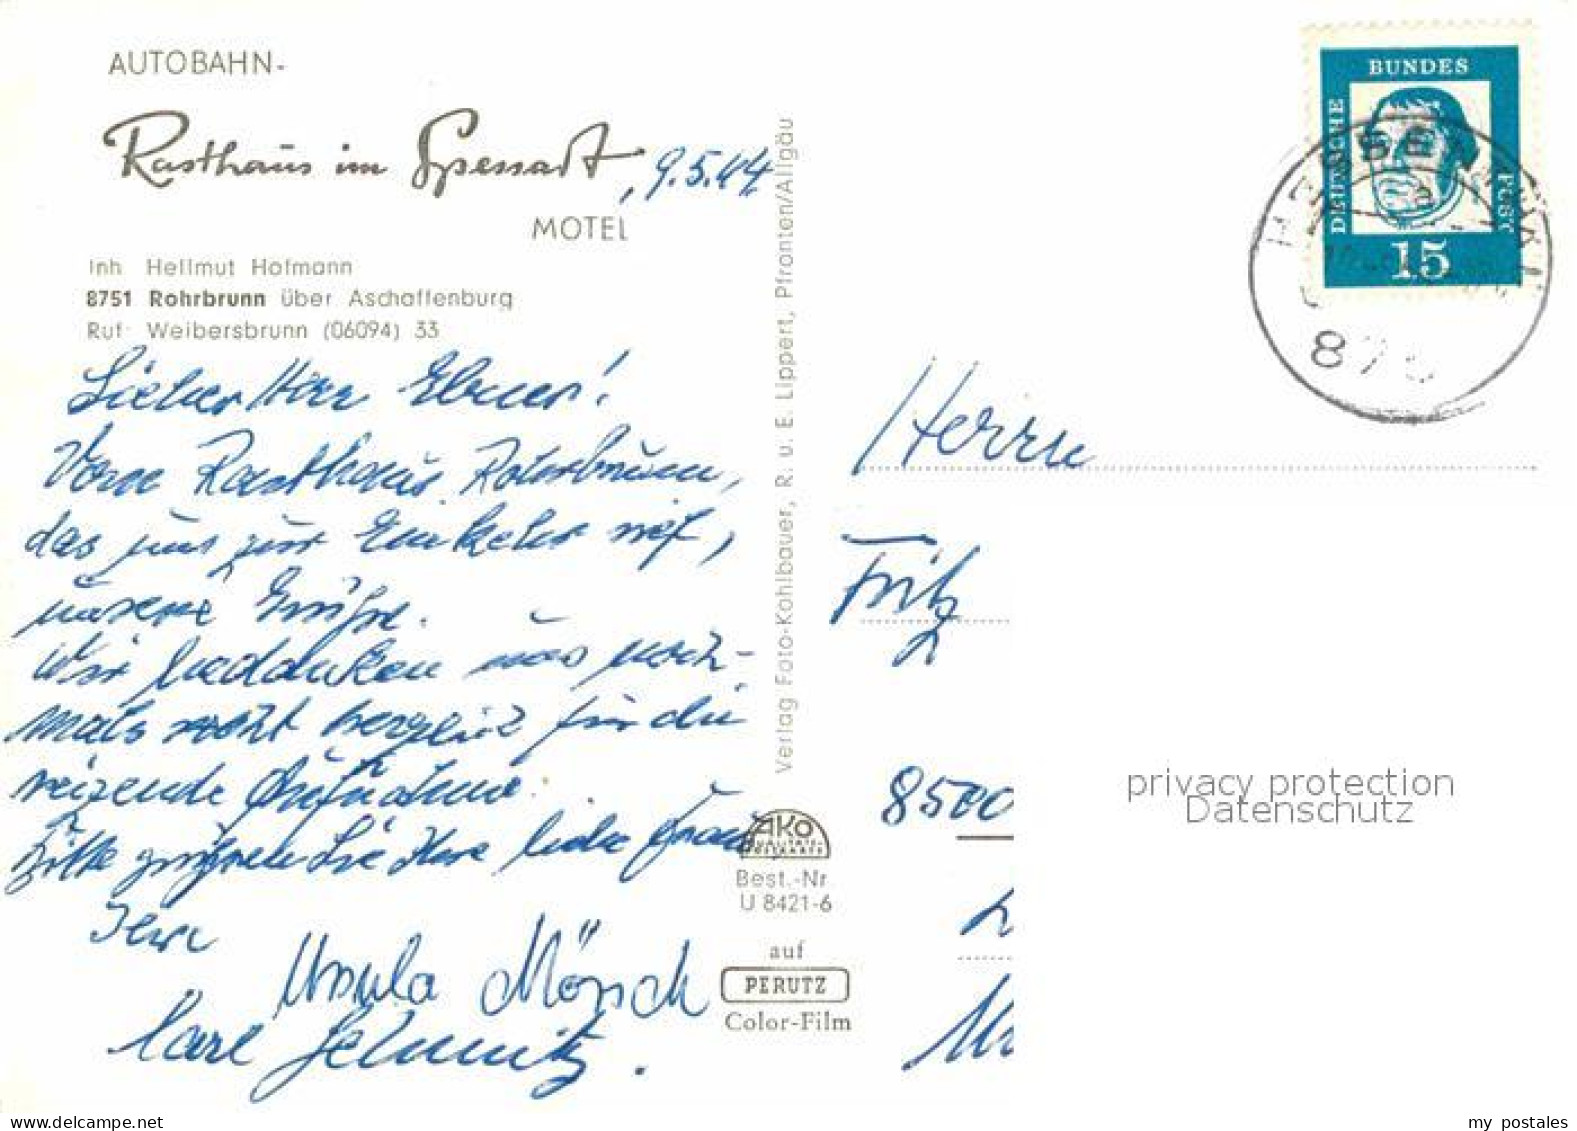 AUTOBAHN-
Rasthaus im Spessart, 9.5.64
MOTEL
Inh. Hellmut Hofmann
8751 Rohrbrunn über Aschaffenburg
Ruf: Weibersbrunn (06094) 33
Lieber Herr Ebner!
Vom Rasthaus Rohrbrunn,
das uns zur Einkehr rief,
unsere Grüße.
Wir bedanken uns noch-
mals recht herzlich für die
reizende Aufnahme.
Bitte grüßen Sie Ihre liebe Frau
Ihre
Ursula Mörsch
Carl Schmitz.
Verlag Foto-Kohlbauer, R. u. E. Lippert, Pfronten/Allgäu
AKO
QUALITÄTS-
POSTKARTE
Best.-Nr.
U 8421-6
auf
PERUTZ
Color-Film
DEUTSCHE
BUNDES
POST
15
Herrn
Fritz
8500
privacy protection
Datenschutz
my postales